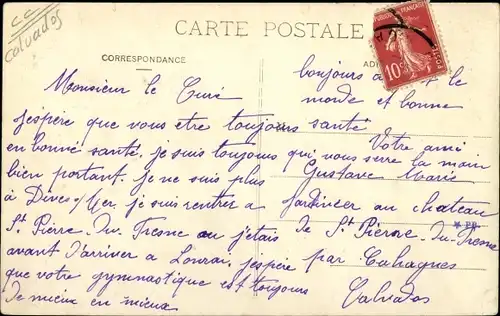 CC
Calvados
CARTE POSTALE
CORRESPONDANCE
Monsieur le Curé
j'espère que vous etre toujours
en bonne santé, je suis toujours
bien portant. je ne suis plus
à Dives s/Mer, je suis rentrer a
St Pierre. du. Fresne ou j'etais
avant d'arriver a
que votre gymnastique est toujours
de mieux en mieux
bonjours a le
monde et bonne
santé
Votre ami
qui vous serre la main
Gustave Marie
jardinier au chateau
de St Pierre. du. Fresne
par Cahagnes
Calvados
10